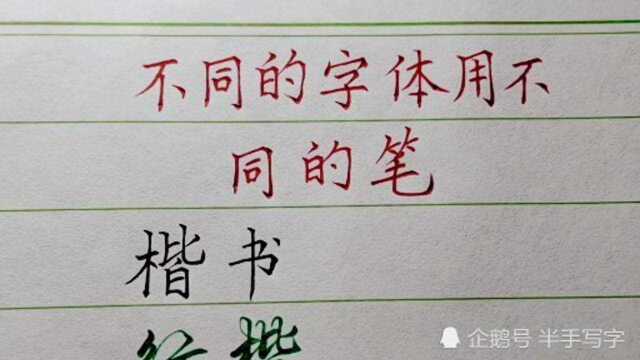 不同的字体用不
同的笔
楷书
行楷
企鹅号 半手写字